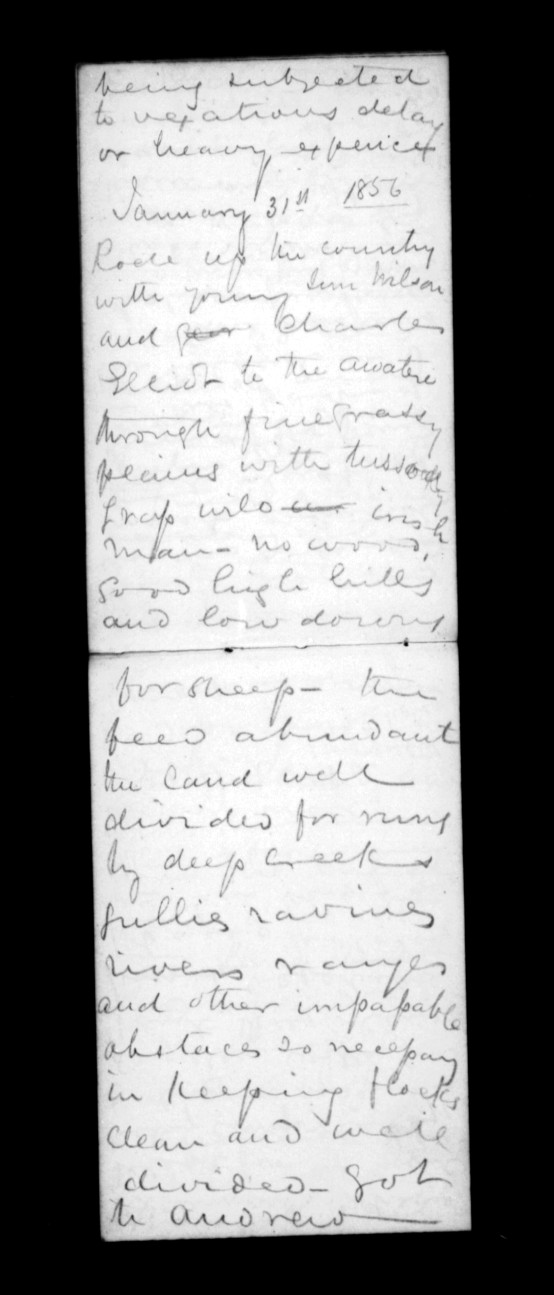 being subjected
to vexations delay
or heavy expence
January 31st 1856
Rode up the country
with young Wilson
and Charles
Elliot to the Awatere
through fine grassy
plains with tussock
grass wild irish
man - no wood,
good high hills
and low downs
for sheep - the
feed abundant
the land well
divided for runs
by deep creeks
gullies ravines
rivers ranges
and other impassable
obstaces so necessary
in keeping flocks
clean and well
divided - got
to Andrew